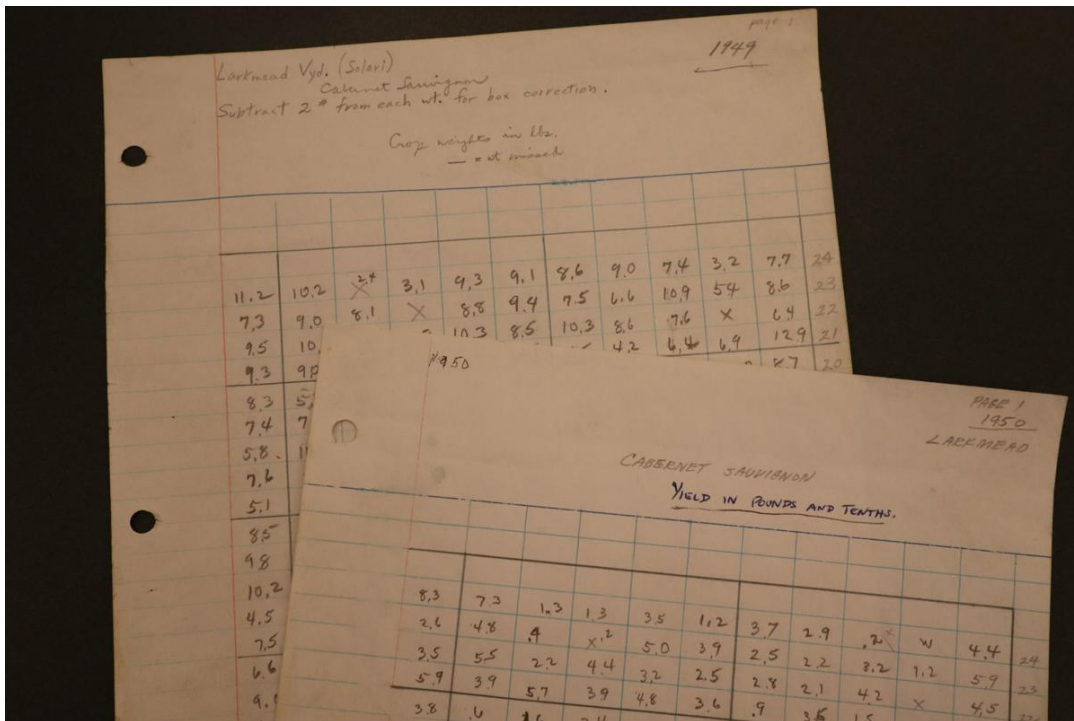 page 1
1949
Larkmead Vyd. (Solari)
Cabernet Sauvignon
Subtract 2 # from each wt. for box correction.
Crop weights in lbs.
11.2 10.2 X 2.4 3.1 9.3 9.1 8.6 9.0 7.4 3.2 7.7 24
7.3 9.0 8.1 X 8.8 9.4 7.5 6.6 10.9 5.4 8.6 23
9.5 10. 10.3 8.5 10.3 8.6 7.6 X 6.4 22
9.3 9.0 4.2 6.4 6.9 12.9 21
8.3 5. 8.7 20
7.4 7
5.8 11
7.6
5.1
8.5
9.8
10.2
4.5
7.5
6.6
9.
1950
PAGE 1
1950
LARKMEAD
CABERNET SAUVIGNON
YIELD IN POUNDS AND TENTHS.
8.3 7.3 1.3 1.3 3.5 1.2 3.7 2.9 .2 W 4.4 24
2.6 4.8 .4 X .2 5.0 3.9 2.5 2.2 3.2 1.2 5.9 23
3.5 5.5 2.2 4.4 3.2 2.5 2.8 2.1 4.2 X 4.5
5.9 3.9 5.7 3.9 4.8 3.6 .9 3.5
3.8 .6